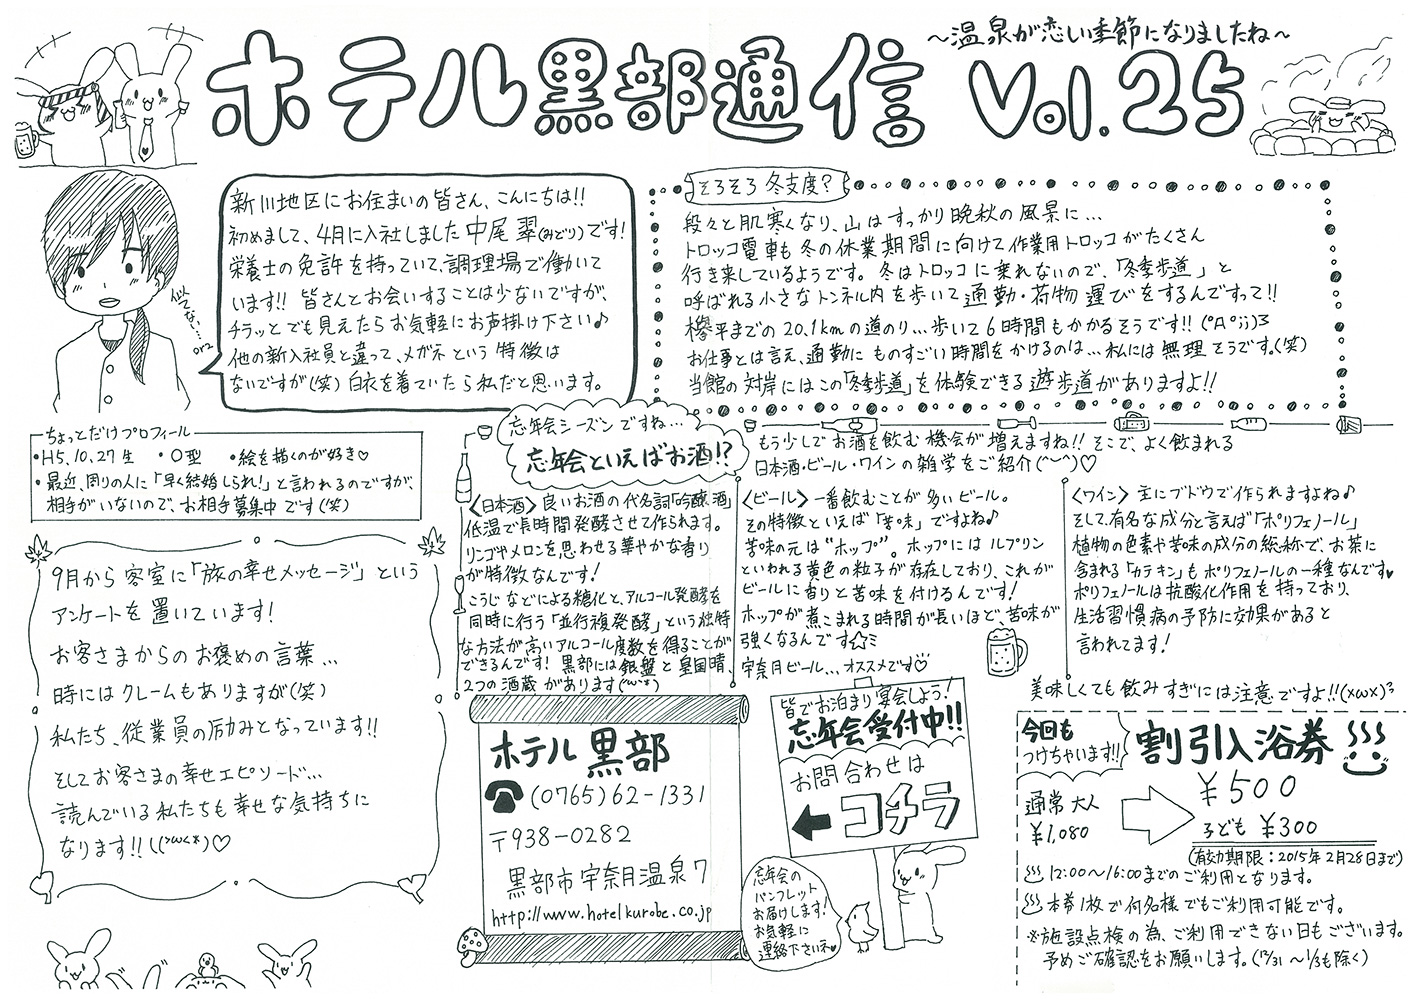 ～温泉が恋しい季節になりましたね～
ホテル黒部通信 Vol.25
新川地区にお住まいの皆さん、こんにちは!!
初めまして、4月に入社しました中尾 翠(みどり)です!
栄養士の免許を持っていて、調理場で働いて
います!! 皆さんとお会いすることは少ないですが、
チラッとでも見えたらお気軽にお声掛け下さい♪
他の新入社員と違って、メガネという特徴は
ないですが(笑) 白衣を着ていたら私だと思います。
似てない… orz
そろそろ冬支度?
段々と肌寒くなり、山はすっかり晩秋の風景に…
トロッコ電車も冬の休業期間に向けて作業用トロッコがたくさん
行き来しているようです。冬はトロッコに乗れないので、「冬季歩道」と
呼ばれる小さなトンネル内を歩いて通勤・荷物運びをするんですって!!
欅平までの20.1kmの道のり…歩いて6時間もかかるそうです!!(°Д°;;)
お仕事とは言え、通勤にものすごい時間をかけるのは…私には無理そうです。(笑)
当館の対岸にはこの「冬季歩道」を体験できる遊歩道がありますよ!!
ちょっとだけプロフィール
・H5.10.27生 ・O型 ・絵を描くのが好き♡
・最近、周りの人に「早く結婚しられ!」と言われるのですが、
相手がいないので、お相手募集中です(笑)
9月から客室に「旅の幸せメッセージ」という
アンケートを置いています!
お客さまからのお褒めの言葉…
時にはクレームもありますが(笑)
私たち、従業員の励みとなっています!!
そしてお客さまの幸せエピソード…
読んでいる私たちも幸せな気持ちに
なります!!((>ω<*)♡
忘年会シーズンですね…
忘年会といえばお酒!?
もう少しでお酒を飲む機会が増えますね!! そこで、よく飲まれる
日本酒・ビール・ワインの雑学をご紹介(^‿^)♡
〈日本酒〉良いお酒の代名詞「吟醸酒」
低温で長時間発酵させて作られます。
リンゴやメロンを思わせる華やかな香り
が特徴なんです!
こうじなどによる糖化と、アルコール発酵を
同時に行う「並行複発酵」という独特
な方法が高いアルコール度数を得ることが
できるんです! 黒部には銀盤と皇国晴、
2つの酒蔵があります(*^ω^*)
〈ビール〉一番飲むことが多いビール。
その特徴といえば「苦味」ですよね♪
苦味の元は“ホップ”。ホップにはルプリン
といわれる黄色の粒子が存在しており、これが
ビールに香りと苦味を付けるんです!
ホップが煮こまれる時間が長いほど、苦味が
強くなるんです☆ミ
宇奈月ビール…オススメです♡
〈ワイン〉主にブドウで作られますよね♪
そして、有名な成分と言えば「ポリフェノール」
植物の色素や苦味の成分の総称で、お茶に
含まれる「カテキン」もポリフェノールの一種なんです♥
ポリフェノールは抗酸化作用を持っており、
生活習慣病の予防に効果があると
言われてます!
美味しくても飲みすぎには注意ですよ!!(xωx)
ホテル黒部
☎(0765)62-1331
〒938-0282
黒部市宇奈月温泉7
http://www.hotelkurobe.co.jp
皆でお泊まり宴会しよう!
忘年会受付中!!
お問合わせは
←コチラ
忘年会の
パンフレット
お届けします!
お気軽に
連絡下さいネ♥
今回も
つけちゃいます!!
割引入浴券
通常 大人
¥1,080
¥500
子ども ¥300
(有効期限:2015年2月28日まで)
♨12:00～16:00までのご利用となります。
♨本券1枚で何名様でもご利用可能です。
※施設点検の為、ご利用できない日もございます。
予めご確認をお願いします。(12/31～1/3も除く)